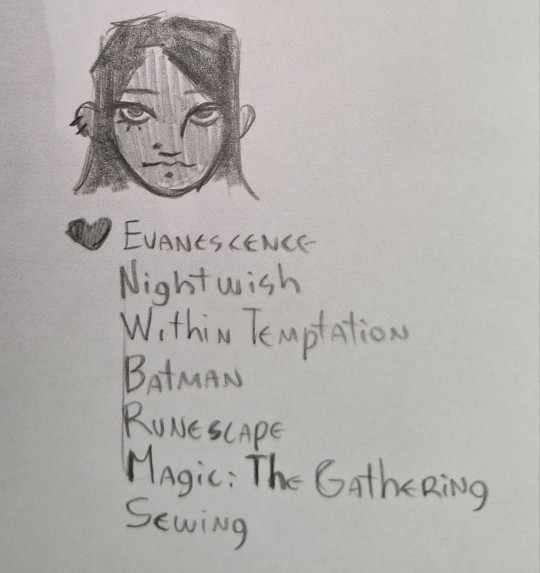 Evanescence
Nightwish
Within Temptation
Batman
Runescape
Magic: The Gathering
Sewing